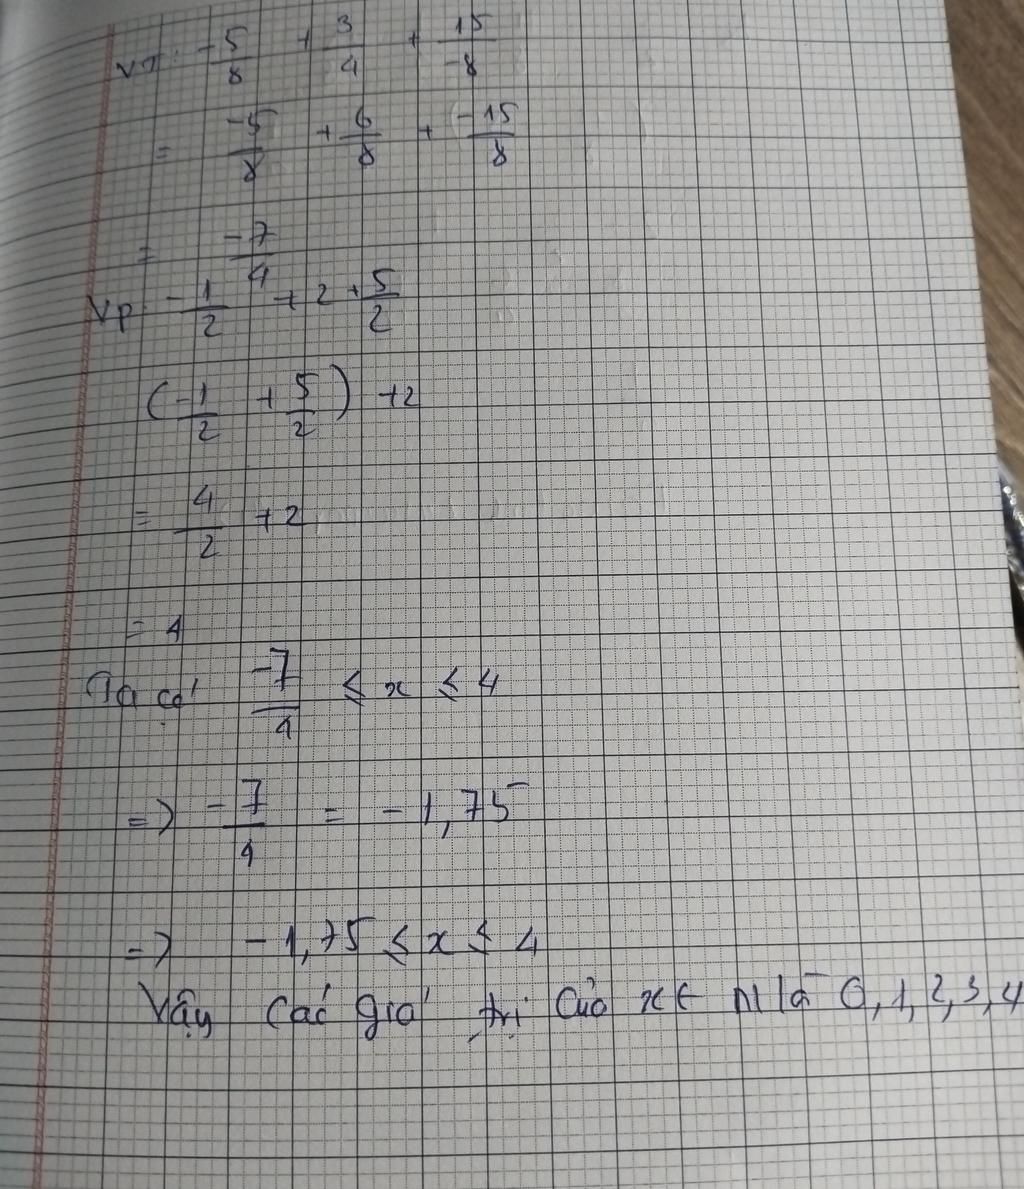 VT: -5/8 + 3/4 + 15/-8
= -5/8 + 6/8 + -15/8
= -7/4
VP: -1/2 + 2 + 5/2
(-1/2 + 5/2) + 2
= 4/2 + 2
= 4
Ta có -7/4 ≤ x ≤ 4
=> -7/4 = -1,75
=> -1,75 ≤ x ≤ 4
Vậy các giá trị của x ∈ N là 0, 1, 2, 3, 4